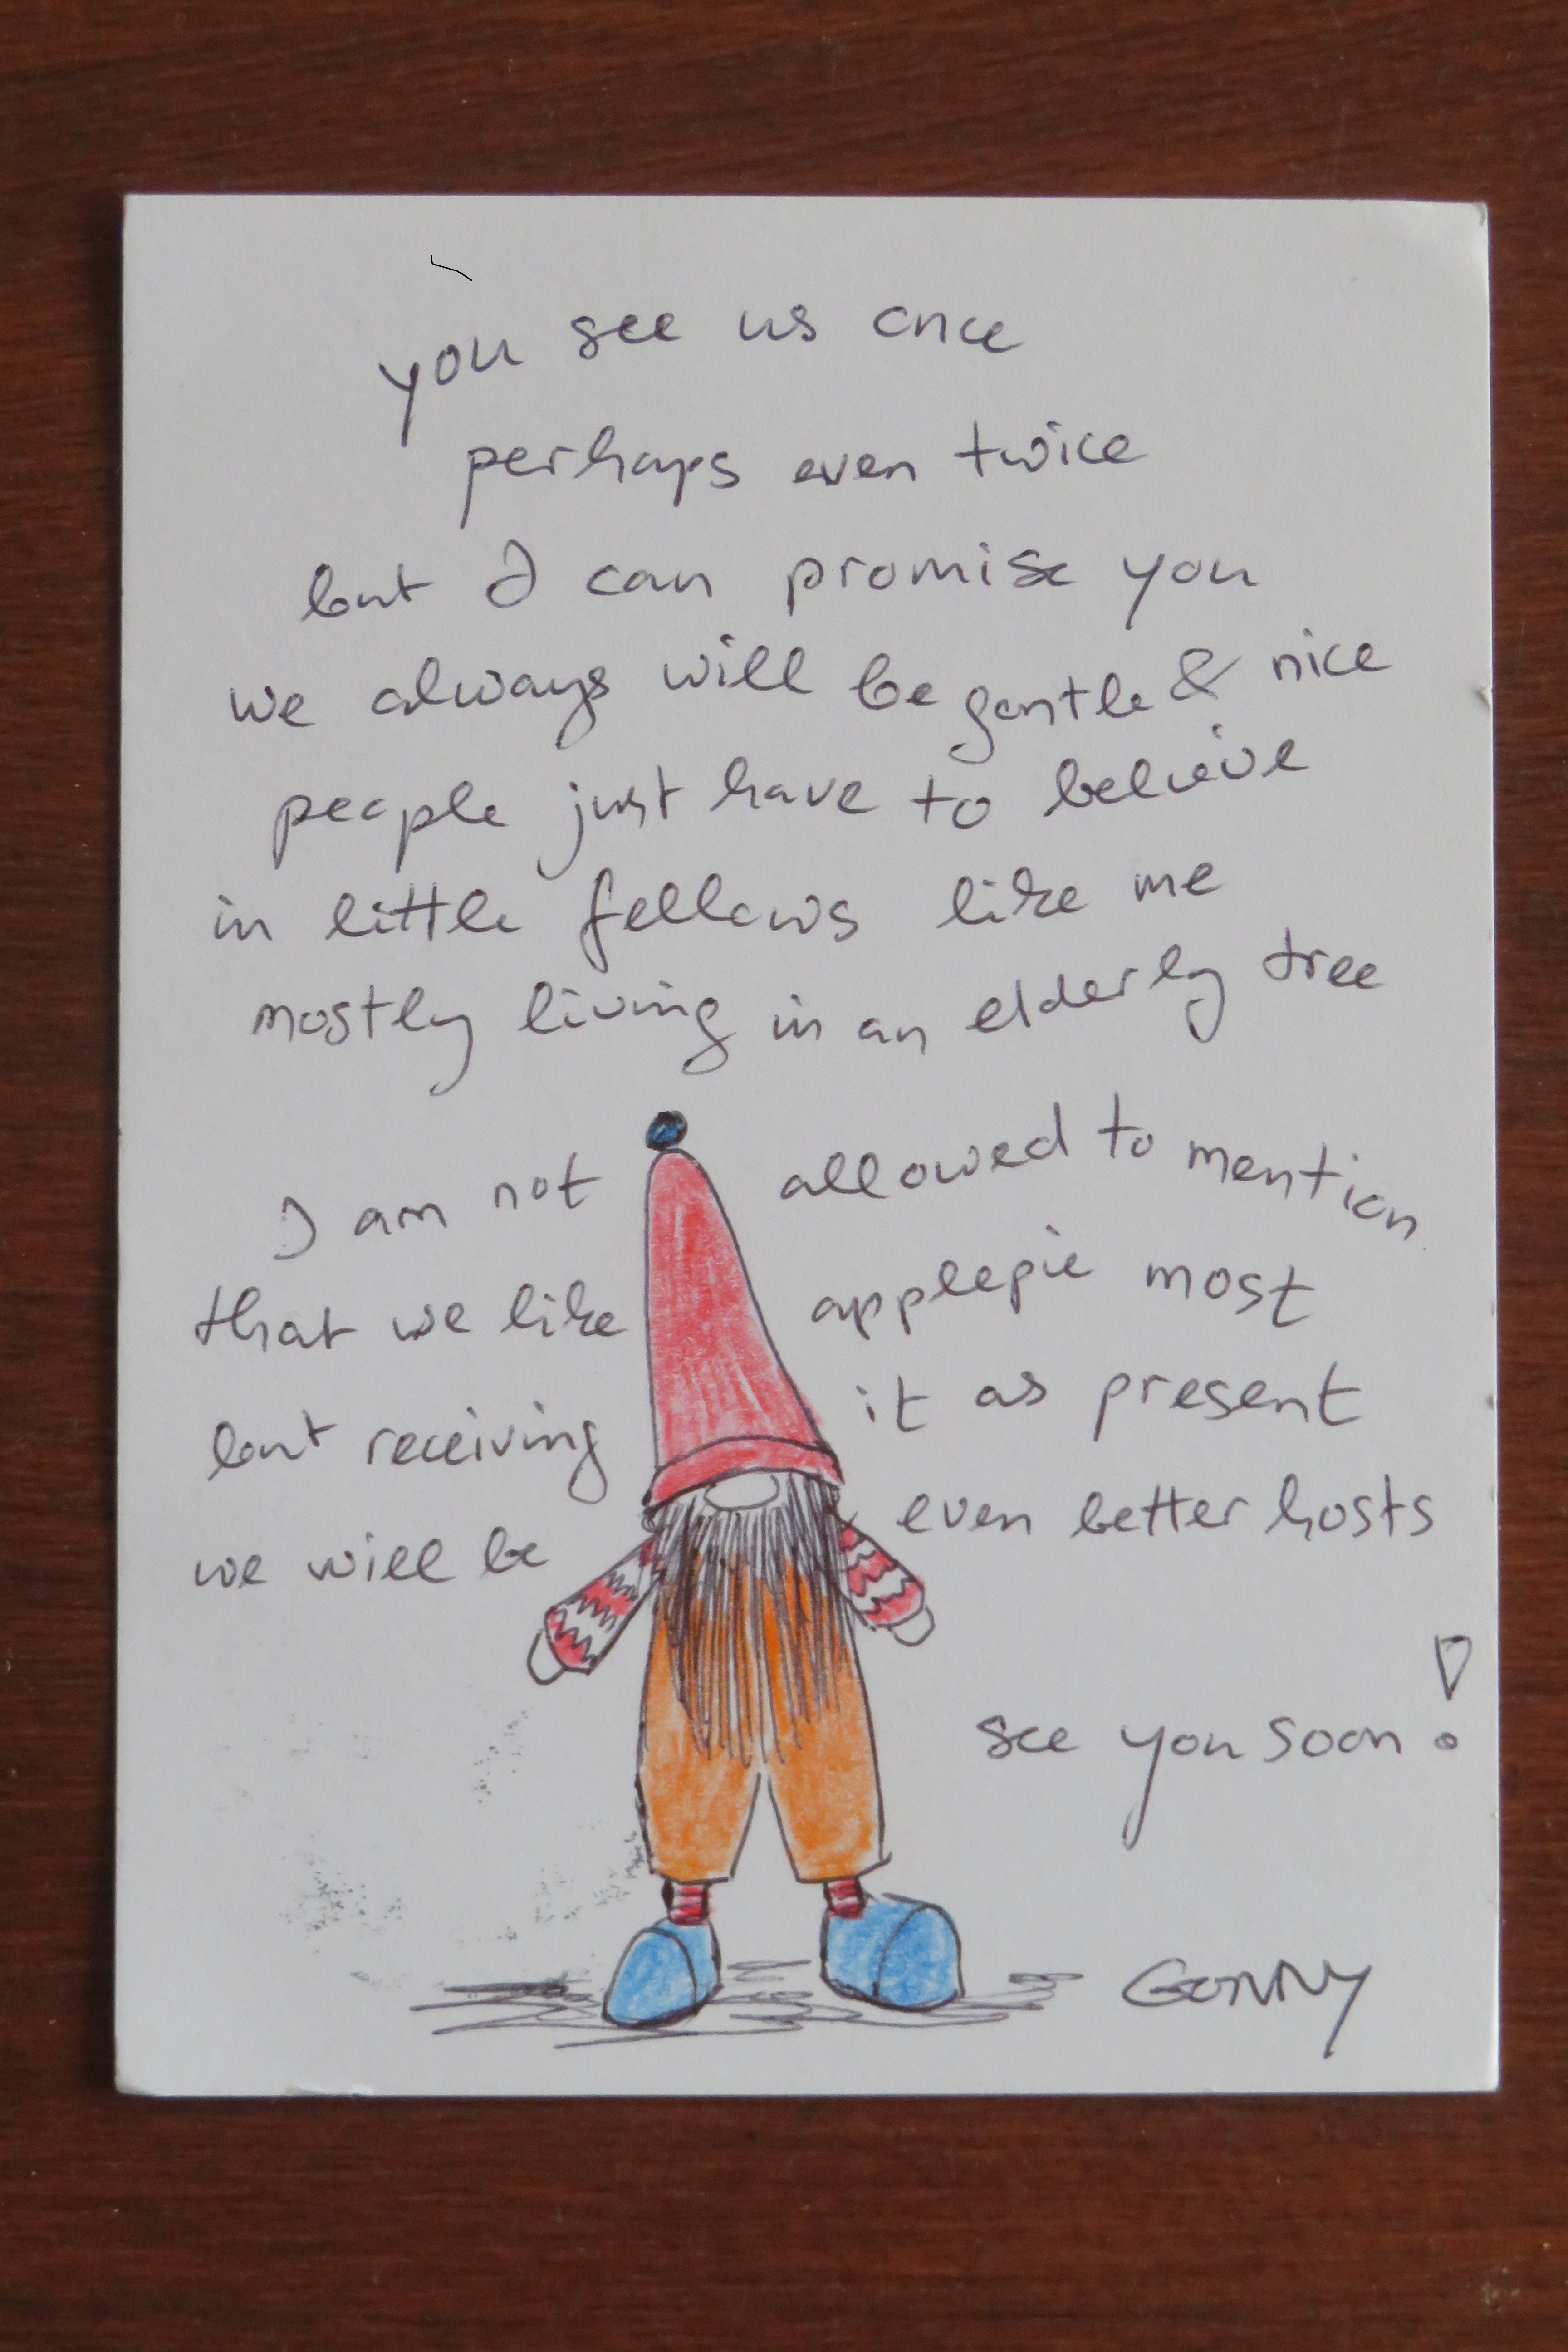 you see us once
perhaps even twice
but I can promise you
we always will be gentle & nice
people just have to believe
in little fellows like me
mostly living in an elderly tree
I am not allowed to mention
that we like applepie most
but receiving it as present
we will be even better hosts
see you soon!
GONNY